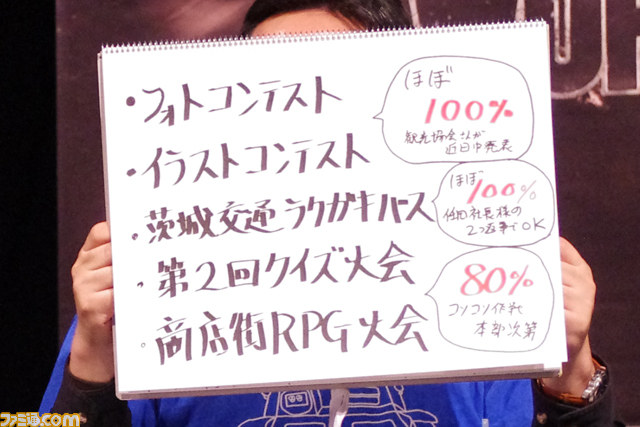 ・フォトコンテスト
・イラストコンテスト
・茨城交通ラクガキバース
・第2回クイズ大会
・商店街RPG大会
ほぼ
100%
観光協会さんが
近日中発表
ほぼ
100%
社長様の
2つ返事でOK
80%
コソコソ作戦
本部次第
ファミ通.com